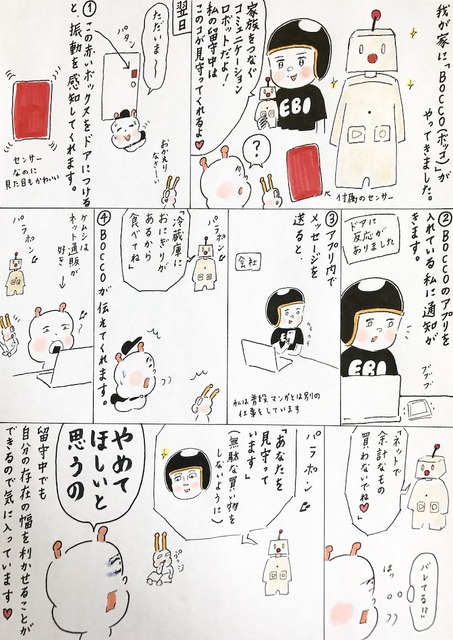 我が家に「BOCCO（ボッコ）」が
やってきました。
付属のセンサー
EBI
家族をつなぐ
コミュニケーション
ロボットだよ！
私の留守中は
このコが見守ってくれるよ♥
？
翌日
ただいま〜
バタン
おかえり
なさーい
①この赤いボックスをドアにつける
と、振動を感知してくれます。
センサー
なのに
見た目もかわいい
②BOCCOのアプリを
入れている私に通知が
きます。
ドアに
反応が
ありました
EBI
ブブブ
③アプリ内で
メッセージを
送ると
会社
私は普段マンガとは別の
仕事をしています
パラポン♪
「冷蔵庫に
おにぎりが
あるから
食べてね」
④BOCCOが伝えてくれます。
ケムシは
ネット通販が
好き→
パラポン♪
「ネットで
余計なもの
買わないでね♥」
バレてる!?
はっ
パラポン♪
「あなたを
見守って
います」
（無駄な買い物を
しないように）
やめて
ほしいと
思うの
留守中でも
自分の存在の幅を利かせることが
できるので気に入っています♥